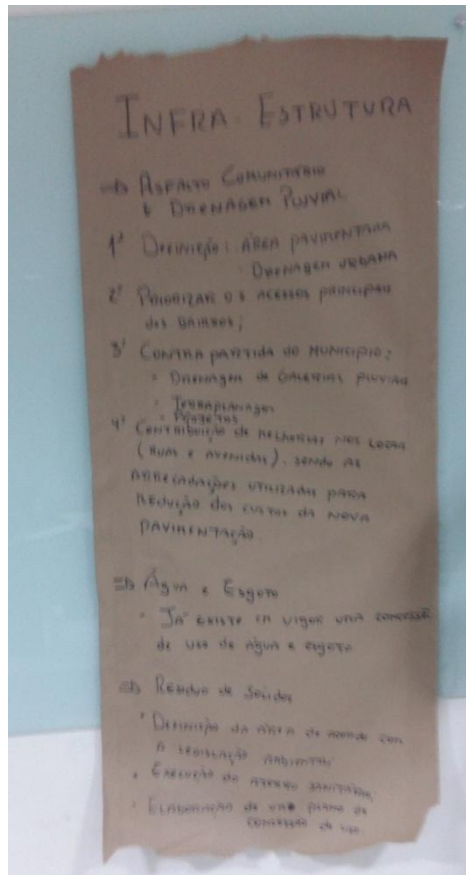 INFRA-ESTRUTURA
⇒ ASFALTO COMUNITÁRIO
E DRENAGEM PLUVIAL
1ª DEFINIÇÃO: ÁREA PAVIMENTADA
· DRENAGEM URBANA
2ª PRIORIZAR OS ACESSOS PRINCIPAIS
dos BAIRROS;
3ª CONTRA PARTIDA DO MUNICÍPIO:
· DRENAGEM de GALERIAS PLUVIAIS
· TERRAPLANAGEM
· PROJETOS
4ª CONTRIBUIÇÃO de MELHORIAS NOS LOCAIS
(RUAS E AVENIDAS), SENDO AS
ARRECADAÇÕES UTILIZADAS PARA
REDUÇÃO dos CUSTOS DA NOVA
PAVIMENTAÇÃO.
⇒ ÁGUA E ESGOTO
· JÁ EXISTE EM VIGOR UMA CONCESSÃO
de USO de ÁGUA E ESGOTO
⇒ RESÍDUO de SÓLIDOS
· DEFINIÇÃO DA ÁREA DE ACORDO COM
A LEGISLAÇÃO AMBIENTAL;
· EXECUÇÃO DO ATERRO SANITÁRIO;
· ELABORAÇÃO DE UM PLANO DE
CONCESSÃO DE USO.